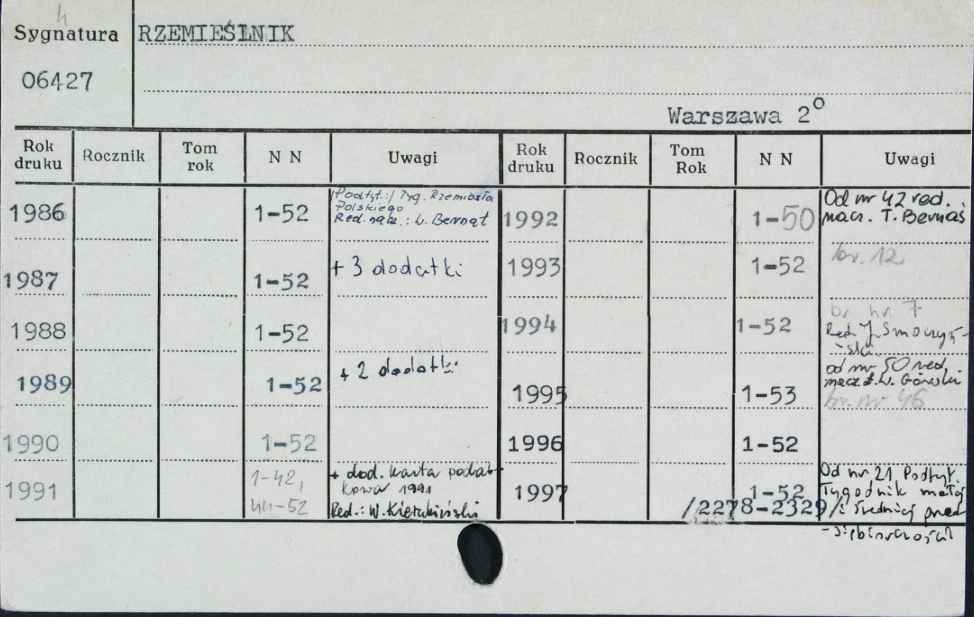 h
Sygnatura RZEMIEŚLNIK
06427
Warszawa 2°
Rok druku Rocznik Tom rok N N Uwagi Rok druku Rocznik Tom Rok N N Uwagi
1986 1-52 Podtyt.: Tyg. Rzemiosła
Polskiego
Red. nacz.: L. Bernat
1987 1-52 + 3 dodatki
1988 1-52
1989 1-52 + 2 dodatki
1990 1-52
1991 1-42, 44-52 + dod. karta podat-
kowa 1991
Red.: W.
1992 1-50 Od nr 42 red.
nacz. T. Bernaś
1993 1-52 br. 12
1994 1-52 br. nr. 7
Red. J. Smoczyń-
ska
1995 1-53 od nr 50 red
nacz. W. Górski
br. nr 46
1996 1-52
1997 1-52 Od nr 21 Podtyt.
Tygodnik małej
/2278-2329/ i średniej przed
-siębiorczości